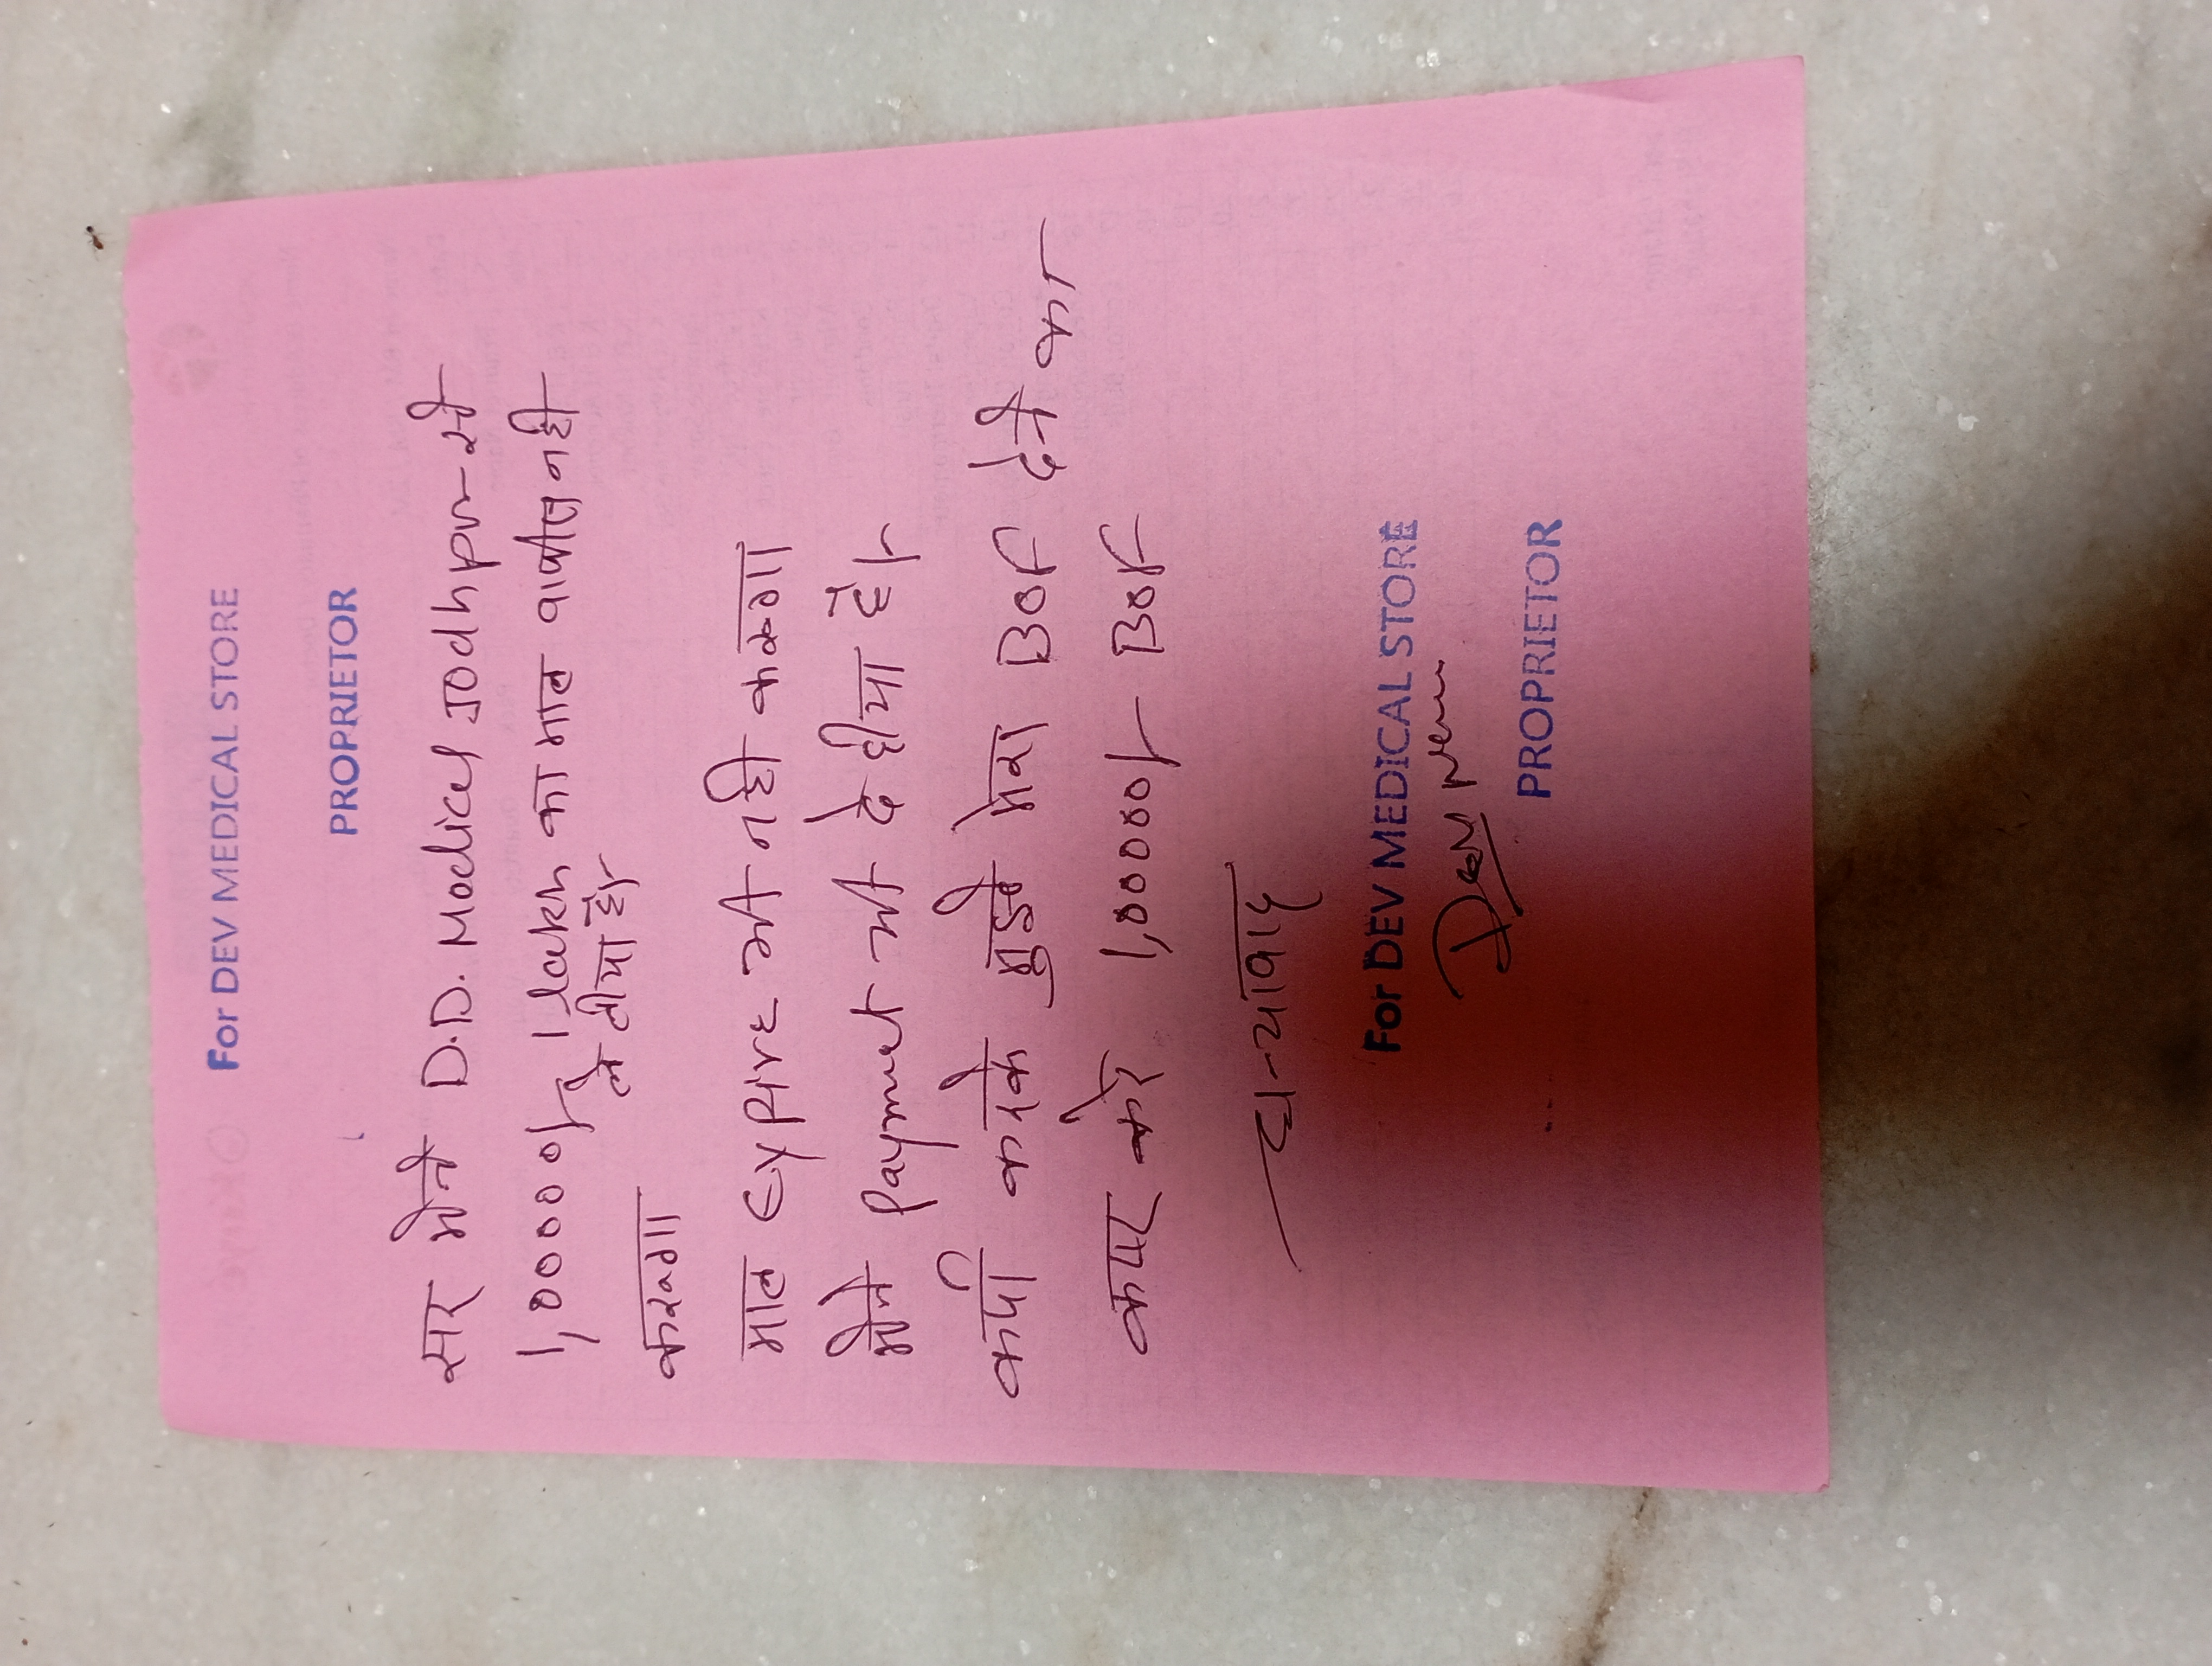 For DEV MEDICAL STORE
PROPRIETOR
सर मैने D.D. Medical Jodhpur से
1,00000/- 1 lakh का माल वापीस नही
ले लीया है।
करूगा
माल Expire भी नही करूगा
मैने Payment भी दे दीया है।
कर्पा करके मुझे मेरा BOX देने का
कष्ट करे 1,00000/- BOX
धन्यवाद
For DEV MEDICAL STORE
PROPRIETOR